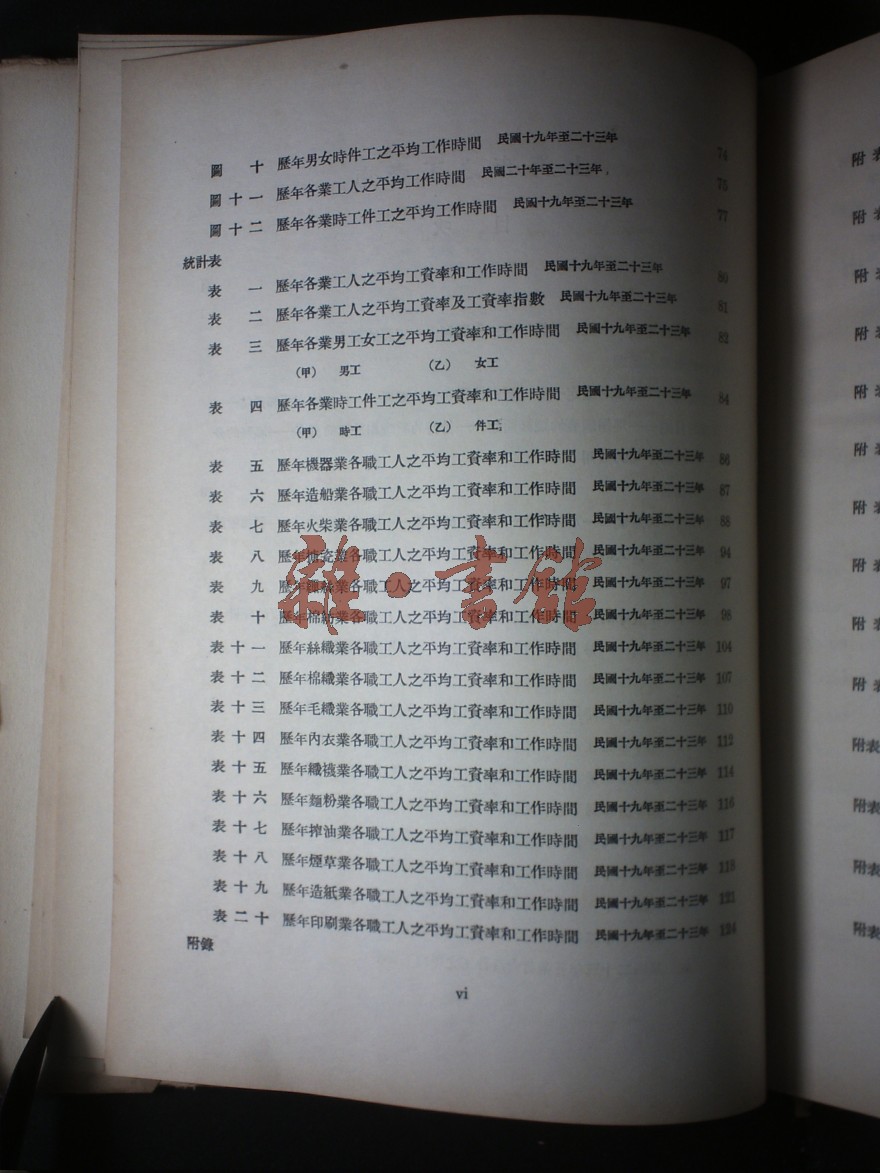 圖 十 歷年男女時件工之平均工作時間 民國十九年至二十三年 74
圖十一 歷年各業工人之平均工作時間 民國二十年至二十三年 75
圖十二 歷年各業時工件工之平均工作時間 民國十九年至二十三年 77
統計表
表 一 歷年各業工人之平均工資率和工作時間 民國十九年至二十三年 80
表 二 歷年各業工人之平均工資率及工資率指數 民國十九年至二十三年 81
表 三 歷年各業男工女工之平均工資率和工作時間 民國十九年至二十三年 82
(甲) 男工 (乙) 女工
表 四 歷年各業時工件工之平均工資率和工作時間 民國十九年至二十三年 84
(甲) 時工 (乙) 件工
表 五 歷年機器業各職工人之平均工資率和工作時間 民國十九年至二十三年 86
表 六 歷年造船業各職工人之平均工資率和工作時間 民國十九年至二十三年 87
表 七 歷年火柴業各職工人之平均工資率和工作時間 民國十九年至二十三年 88
表 八 歷年業各職工人之平均工資率和工作時間 民國十九年至二十三年 94
表 九 歷年業各職工人之平均工資率和工作時間 民國十九年至二十三年 97
表 十 歷年棉紡業各職工人之平均工資率和工作時間 民國十九年至二十三年 98
表十一 歷年絲織業各職工人之平均工資率和工作時間 民國十九年至二十三年 104
表十二 歷年棉織業各職工人之平均工資率和工作時間 民國十九年至二十三年 107
表十三 歷年毛織業各職工人之平均工資率和工作時間 民國十九年至二十三年 110
表十四 歷年內衣業各職工人之平均工資率和工作時間 民國十九年至二十三年 112
表十五 歷年織襪業各職工人之平均工資率和工作時間 民國十九年至二十三年 114
表十六 歷年麵粉業各職工人之平均工資率和工作時間 民國十九年至二十三年 116
表十七 歷年搾油業各職工人之平均工資率和工作時間 民國十九年至二十三年 117
表十八 歷年煙草業各職工人之平均工資率和工作時間 民國十九年至二十三年 118
表十九 歷年造紙業各職工人之平均工資率和工作時間 民國十九年至二十三年
表二十 歷年印刷業各職工人之平均工資率和工作時間 民國十九年至二十三年 124
附錄
vi
雜·書館
附表
附表
附表
附表
附表
附表
附表
附表
附表
附表
附表
附表
附表
附表